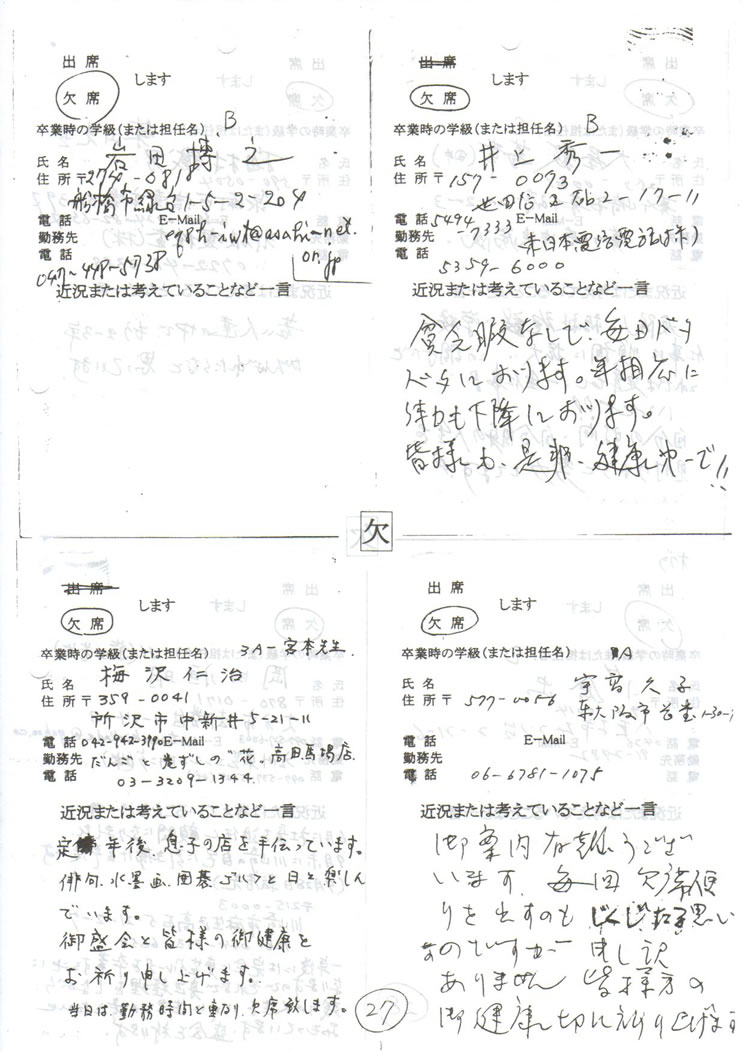 出 席
します
欠 席
卒業時の学級(または担任名) B
氏 名 岩田 博之
住 所 〒274-0818
船橋市緑台1-5-2-204
電 話 E-Mail
勤務先 @asahi-net.
電 話 or.jp
近況または考えていることなど一言
出 席
します
欠 席
卒業時の学級(または担任名) B
氏 名 井上 秀一
住 所 〒157-0073
世田谷区砧2-17-11
電 話 5494 E-Mail
勤務先 -7333 東日本電信電話(株)
電 話 5359-6000
近況または考えていることなど一言
貧乏暇なしで、毎日バタ
バタしております。年相応に
体力も下降しております。
皆様も、是非、健康第一で!!
欠
出 席
します
欠 席
卒業時の学級(または担任名) 3A-宮本先生
氏 名 梅沢仁治
住 所 〒359-0041
所沢市中新井5-21-11
電 話 042-942-3190 E-Mail
勤務先 だんごと鬼ずしの"花"高田馬場店
電 話 03-3209-1344
近況または考えていることなど一言
定年後、息子の店を手伝っています。
俳句、水墨画、囲碁、ゴルフと日々楽しん
でいます。
御盛会と皆様の御健康を
お祈り申し上げます。
当日は、勤務時間と重なり、欠席致します。
出 席
します
欠 席
卒業時の学級(または担任名) A
氏 名 宇宮久子
住 所 〒577-0056
東大阪市
電 話 E-Mail
勤務先
電 話 06-6781-1075
近況または考えていることなど一言
御案内有難うござ
います。毎回欠席便
りを出すのも 思い
なのですが 申し訳
ありません 皆様方の
御健康切に祈り上げます
27